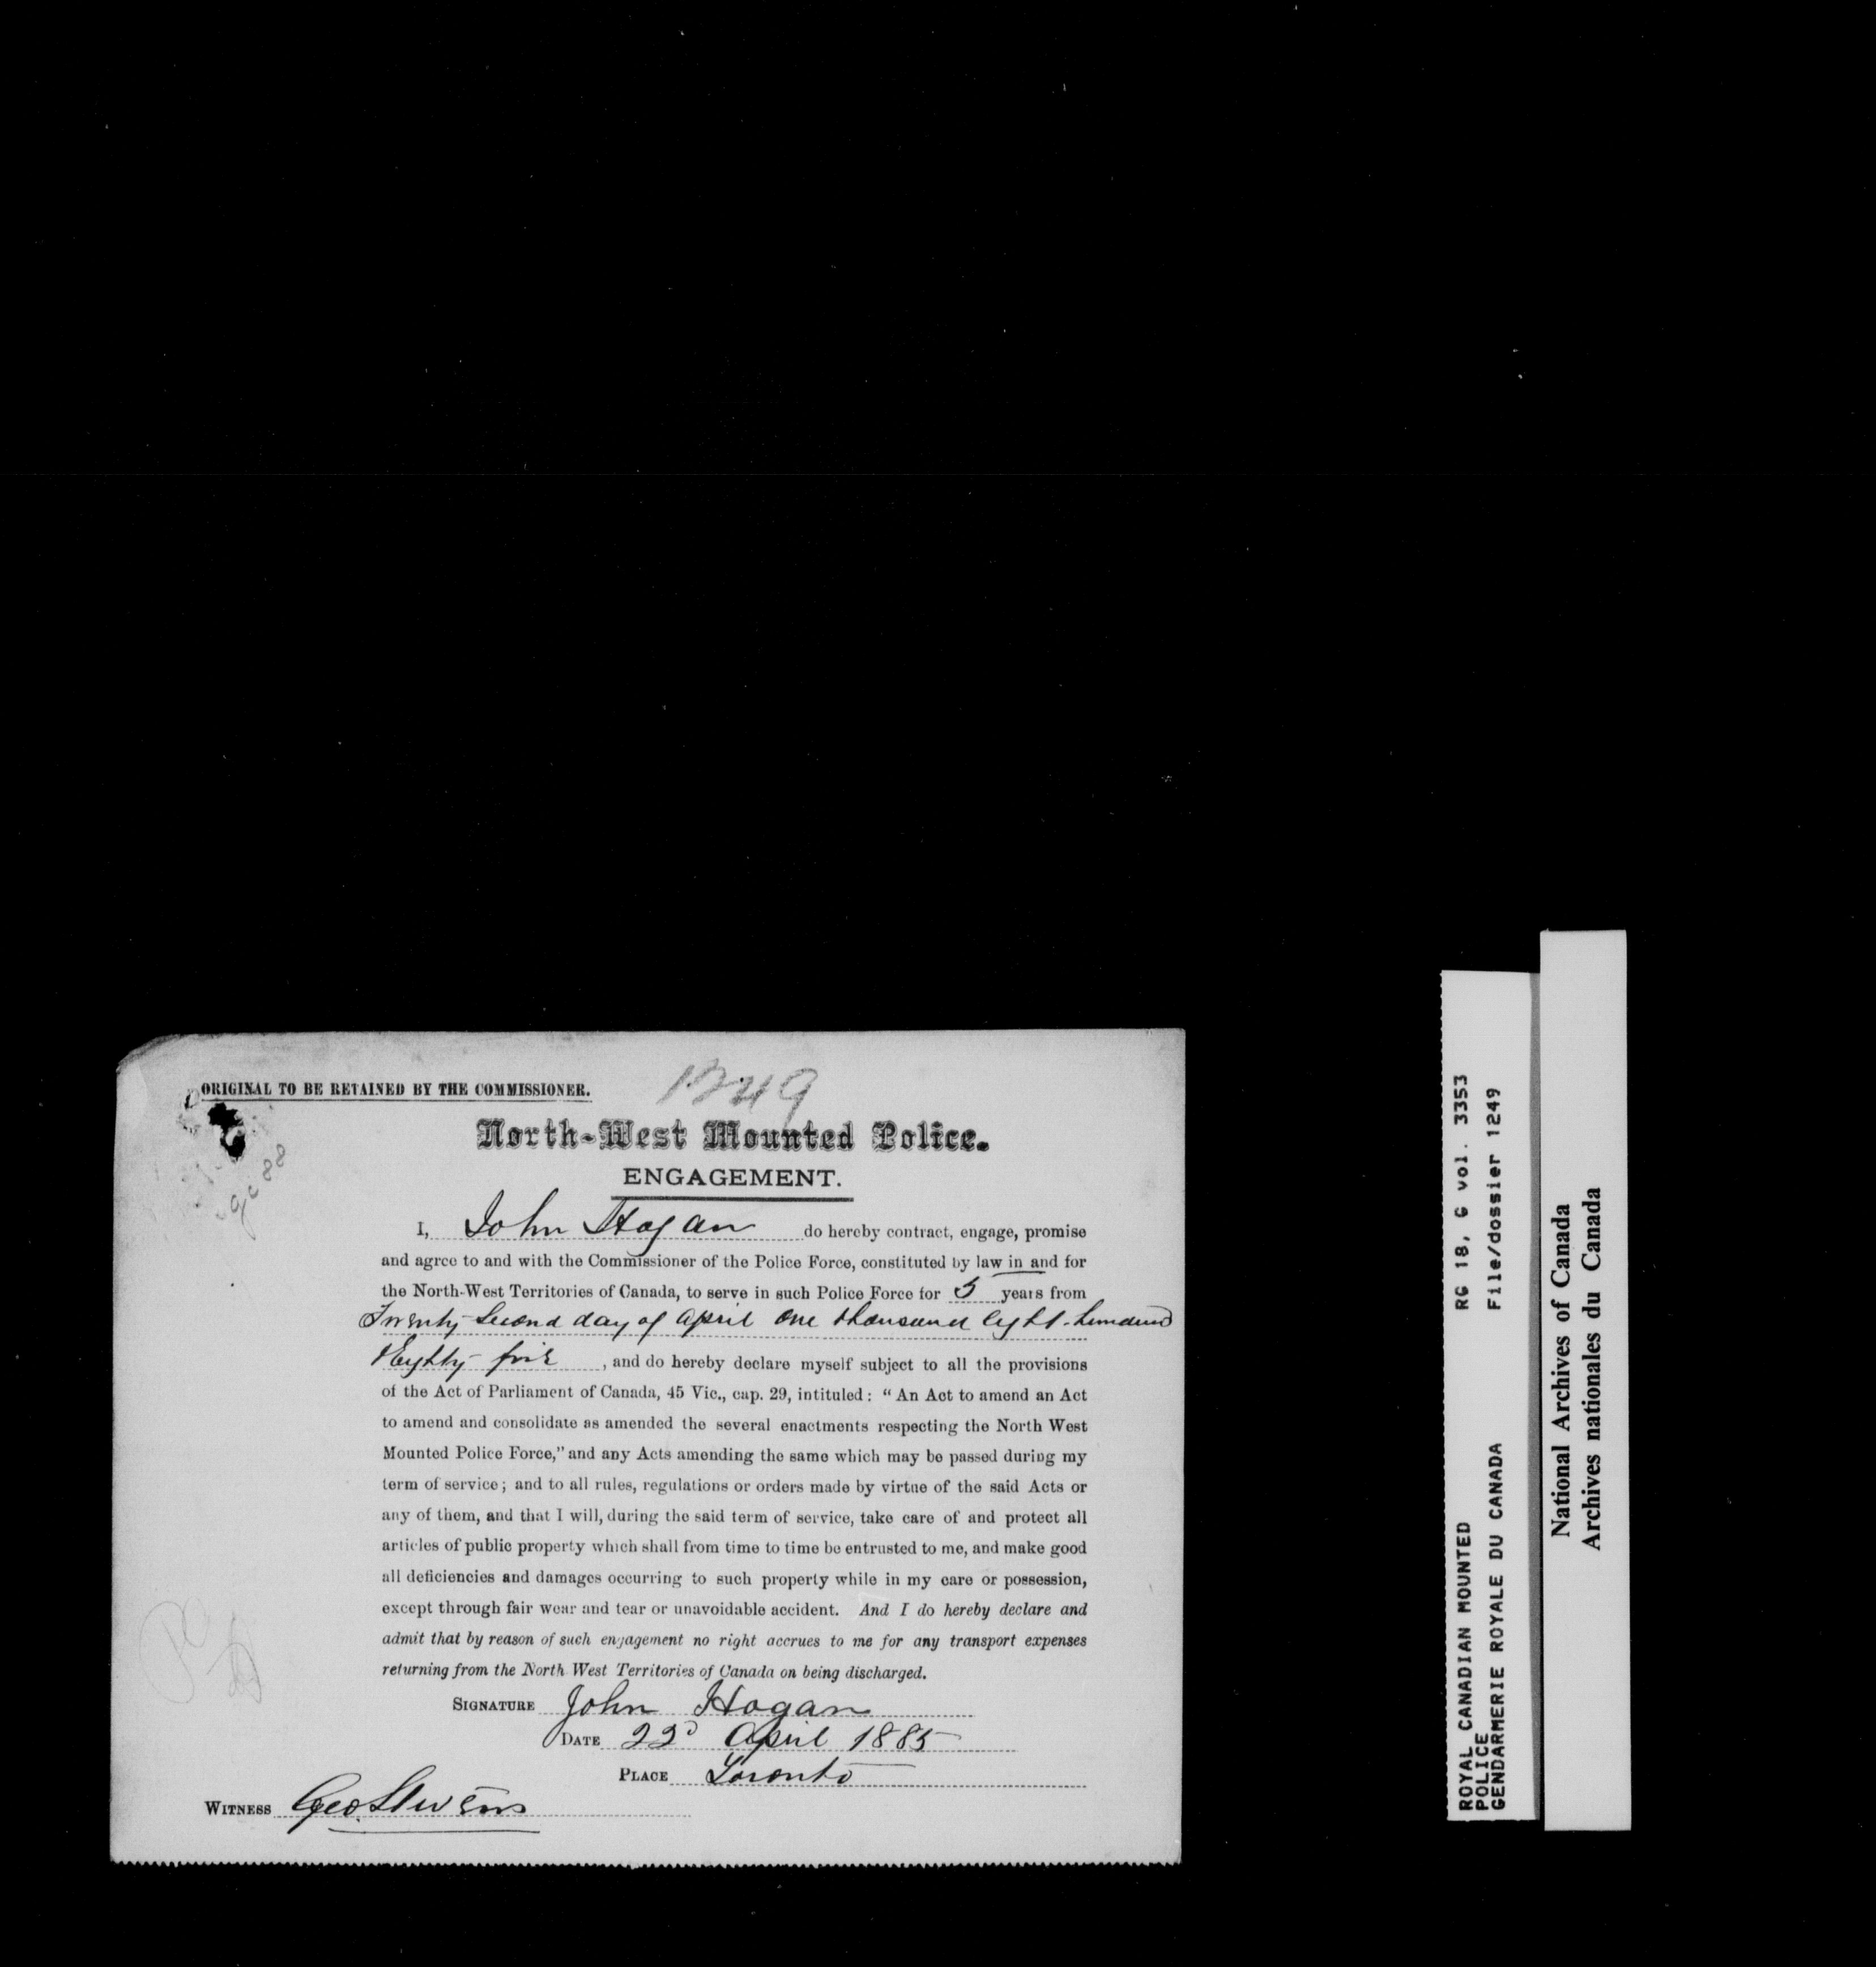 ORIGINAL TO BE RETAINED BY THE COMMISSIONER.
1249
North-West Mounted Police.
ENGAGEMENT.
I, John Hogan do hereby contract, engage, promise
and agree to and with the Commissioner of the Police Force, constituted by law in and for
the North-West Territories of Canada, to serve in such Police Force for 5 years from
Twenty Second day of April One thousand eight hundred
& Eighty five, and do hereby declare myself subject to all the provisions
of the Act of Parliament of Canada, 45 Vic., cap. 29, intituled: “An Act to amend an Act
to amend and consolidate as amended the several enactments respecting the North West
Mounted Police Force,” and any Acts amending the same which may be passed during my
term of service; and to all rules, regulations or orders made by virtue of the said Acts or
any of them, and that I will, during the said term of service, take care of and protect all
articles of public property which shall from time to time be entrusted to me, and make good
all deficiencies and damages occurring to such property while in my care or possession,
except through fair wear and tear or unavoidable accident. And I do hereby declare and
admit that by reason of such engagement no right accrues to me for any transport expenses
returning from the North West Territories of Canada on being discharged.
SIGNATURE John Hogan
DATE 22d April 1885
PLACE Toronto
WITNESS Geo Stevens
ROYAL CANADIAN MOUNTED RG 18, G vol. 3353
POLICE
GENDARMERIE ROYALE DU CANADA File/dossier 1249
National Archives of Canada
Archives nationales du Canada